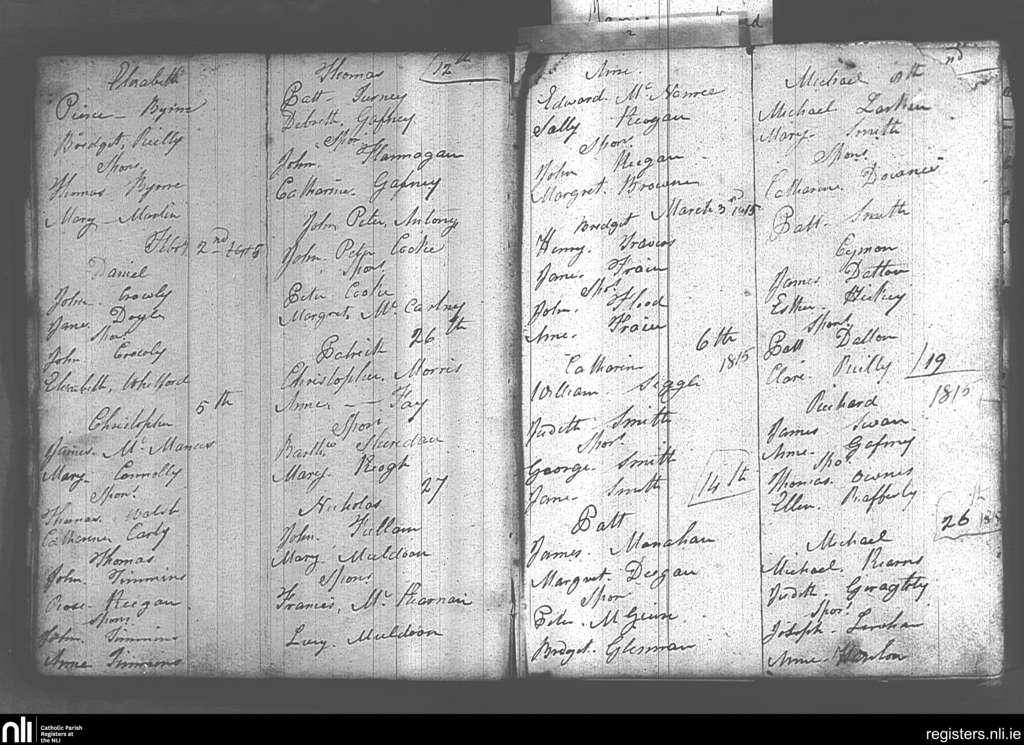 Elizabeth
Pierce - Byrne
Bridget, Reilly
Spons.
Thomas Byrne
Mary - Martin
Feby 2nd 1815
Daniel
John. Crowly
Jane. Doyle
Spor.
John Crowly
Elizabeth, Whelford
5th
Christopher
James. Mc Manus
Mary. Connolly
Spons.
Thomas. Walsh
Catharine Carty
Thomas
John. Timmins
Rose. Keegan
Spons.
John. Timmins
Anne Timmins
12th
Thomas
Patt - Turney
Gafney
Spor.
John. Hannagan
Catharine. Gafney
John Peter, Antony
John. Peter Cooke
Spor.
Peter Cooke
Margret, Mc Cartney
26th
Patrick
Christopher. Morris
Anne. - - Fay
Spor.
Barthw
Mary. Keogh
27
Nicholas
John. Fullam
Mary. Muldoon
Spons
Frances, Mc Kearnan
Lucy - Muldoon
Anne.
Edward. Mc Namee
Sally Keogan
Spor.
John Keegan
Margret. Browne
March 3rd 1815
Bridget
Henry. Travers
Jane. Traier
Spor.
John. Flood
Anne. Traier
6th
1815
Catharin
William.
Judith Smith
Spor.
George. Smith
Jane. Smith
14th
Patt
James. Monahan
Margret. Deegan
Spor
Peter. McGuire
Bridget. Glennan
Michael
Michael Larkin
Mary. Smith
Spons.
Catharine
Patt. Smith
Eymon
James. Dalton
Esther. Hickey
Spons.
Patt Dalton
Clare. Reilly
19
1815
Richard
James Swan
Anne. Gafney
Spo.
Thomas. Downes
Ellen. Rafferty
26th 1815
Michael
Michael. Kearns
Judith. Geraghty
Spor.
Joseph. Linehan
Anne. Hanlon
nli
Catholic Parish
Registers at
the NLI
registers.nli.ie